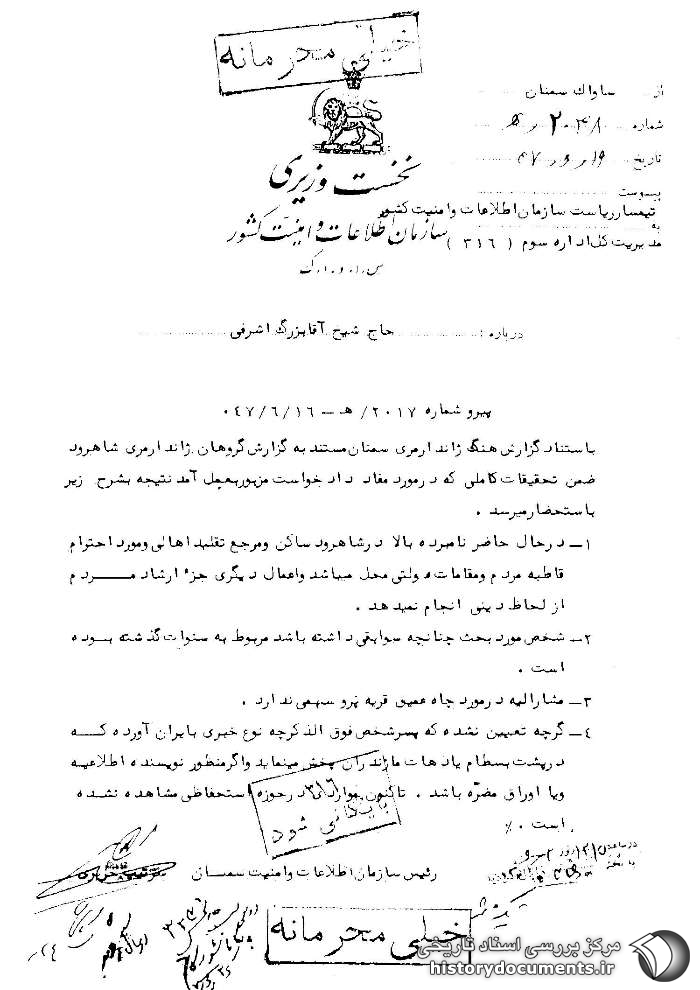 خیلی محرمانه
از ساواك سمنان
شماره ۲۰۴۸
تاریخ
نخست وزیری
پیوست
تیمسار ریاست سازمان اطلاعات و امنیت کشور
به
سازمان اطلاعات و امنیت کشور
مدیریت کل اداره سوم ( ۳۱۶ )
س.ا.و.ا.ک
درباره : حاج شیخ آقابزرگ اشرفی
پیرو شماره ۲۰۱۷/ هـ – ۴۷/۶/۱۶.
باستناد گزارش هنگ ژاندارمری سمنان مستند به گزارش گروهان ژاندارمری شاهرود
ضمن تحقیقات کاملی که در مورد مفاد داد خواست مزبور بعمل آمد نتیجه بشرح زیر
باستحضار میرسد .
۱– در حال حاضر نامبرده بالا در شاهرود ساکن و مرجع تقلید اهالی و مورد احترام
قاطبه مردم و مقامات دولتی محل میباشد و اعمال دیگری جزء ارشاد مردم
از لحاظ دینی انجام نمیدهد .
۲– شخص مورد بحث چنانچه سوابقی داشته باشد مربوط به سنوات گذشته بوده
است .
۳– مشارالیه در مورد چاه عمیق قریه پرو سهمی ندارد .
۴– گرچه تعیین نشده که پسر شخص فوق الذکر چه نوع خبری بایران آورده که
در پشت بسطام یا دهات مازندران پخش مینماید و اگر منظور نویسنده اطلاعیه
ویا اوراق مضره باشد . تاکنون مواردی در حوزه استحفاظی مشاهده نشده
است . ٪
۳۱۶
بایگانی شود
رئیس سازمان اطلاعات و امنیت سمنان
خیلی محرمانه
مرکز بررسی اسناد تاریخی
historydocuments.ir